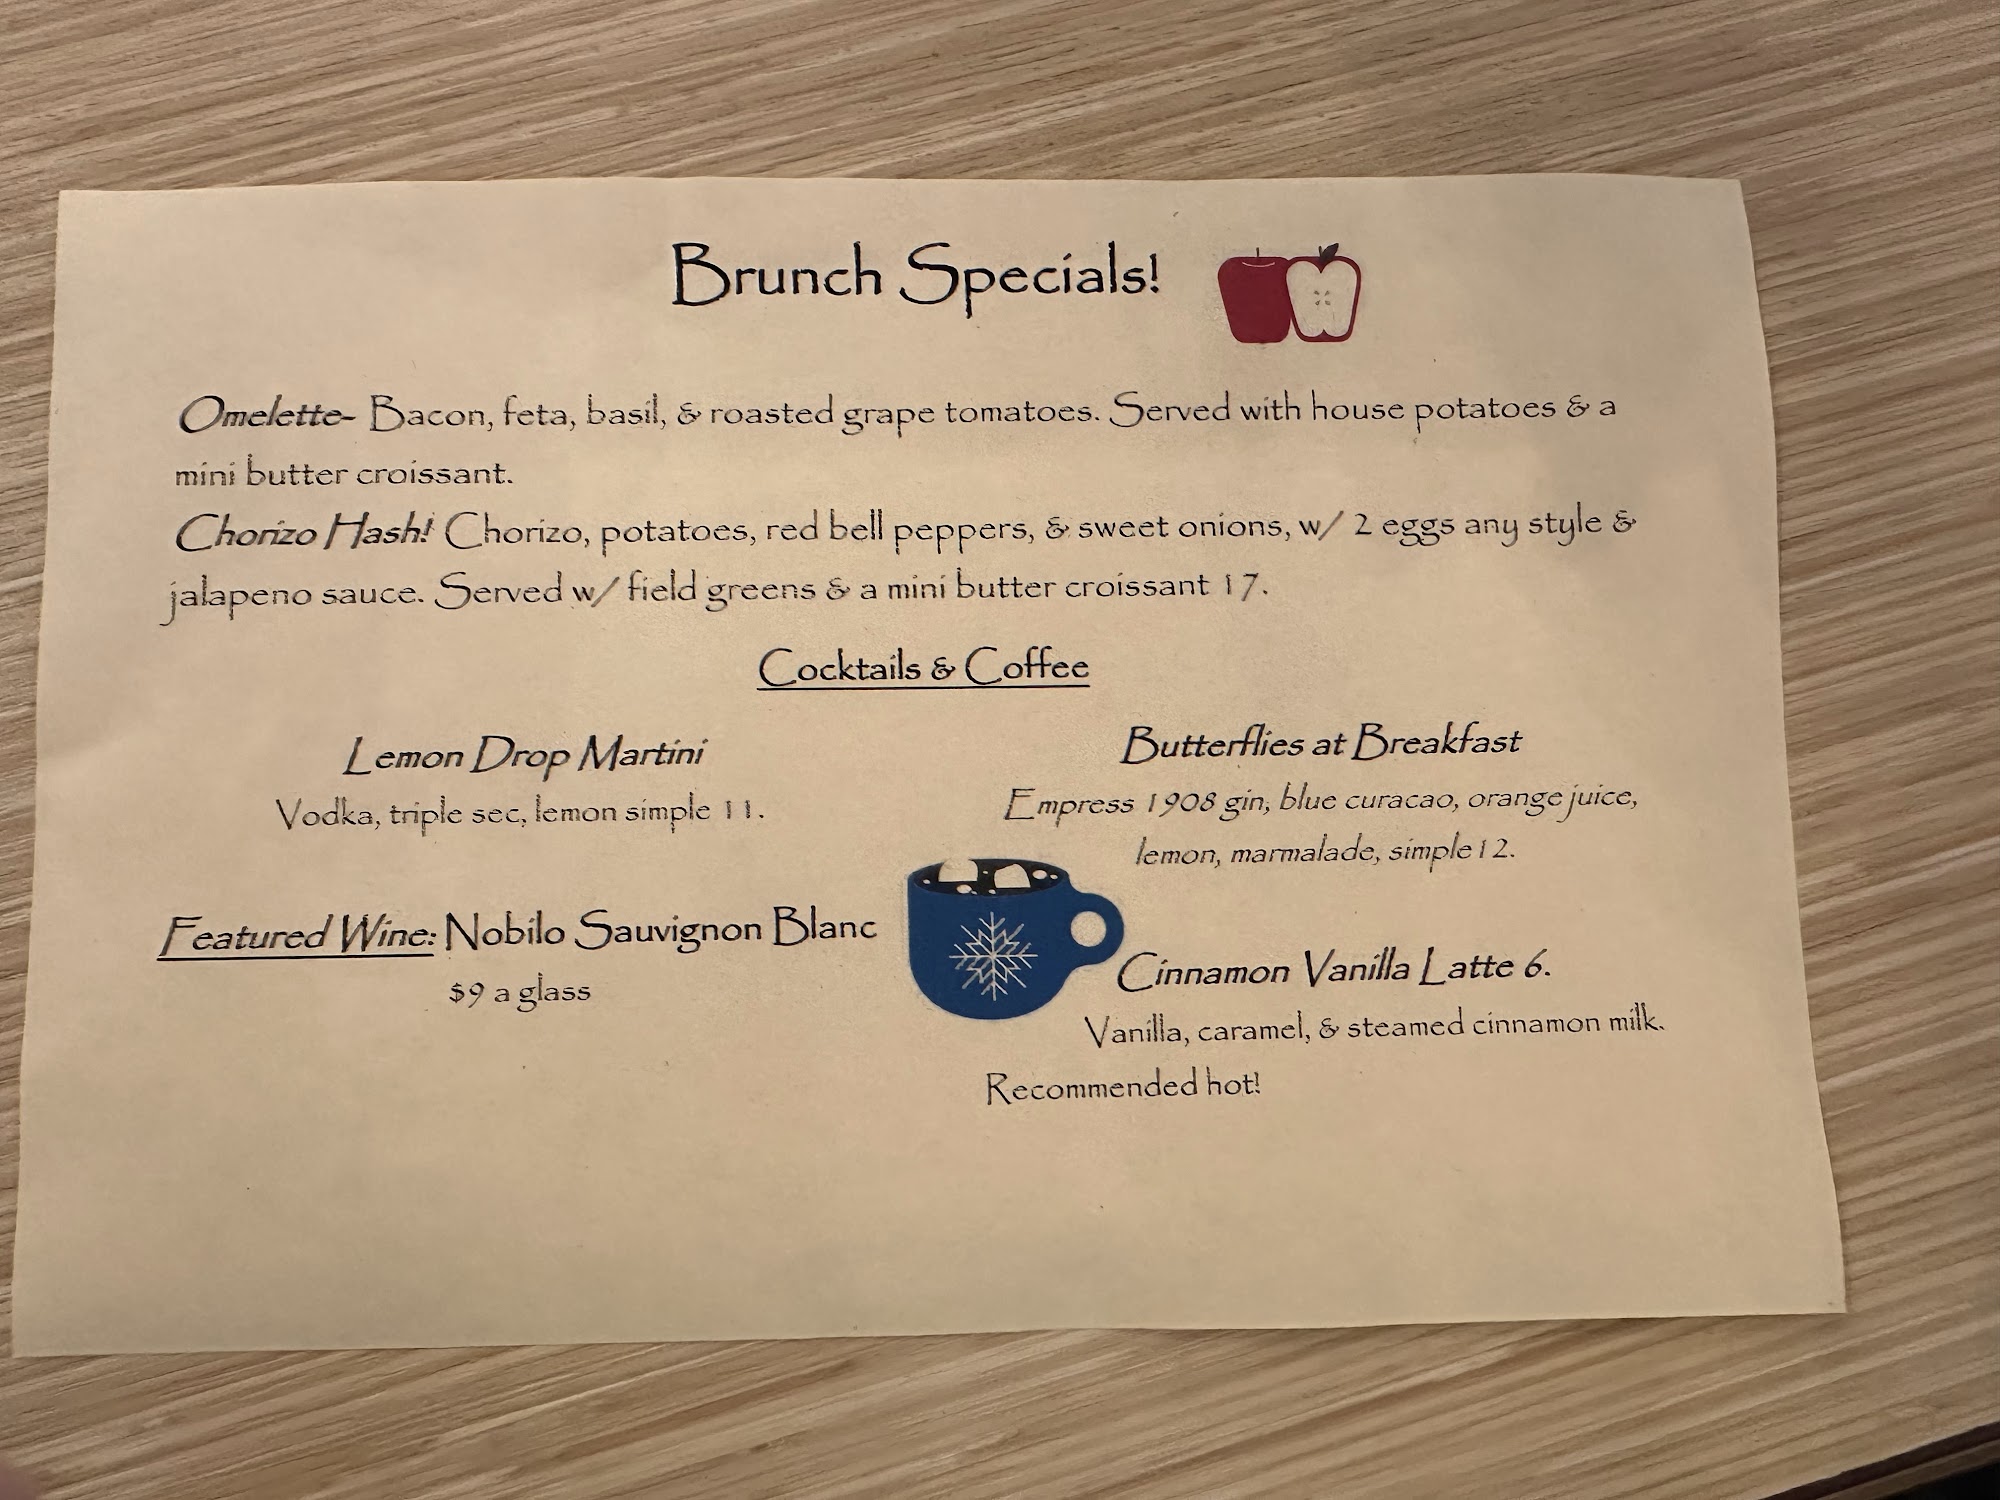 Brunch Specials!
Omelette- Bacon, feta, basil, & roasted grape tomatoes. Served with house potatoes & a
mini butter croissant.
Chorizo Hash! Chorizo, potatoes, red bell peppers, & sweet onions, w/ 2 eggs any style &
jalapeno sauce. Served w/ field greens & a mini butter croissant 17.
Cocktails & Coffee
Lemon Drop Martini
Vodka, triple sec, lemon simple 11.
Butterflies at Breakfast
Empress 1908 gin, blue curacao, orange juice,
lemon, marmalade, simple 12.
Featured Wine: Nobilo Sauvignon Blanc
$9 a glass
Cinnamon Vanilla Latte 6.
Vanilla, caramel, & steamed cinnamon milk.
Recommended hot!